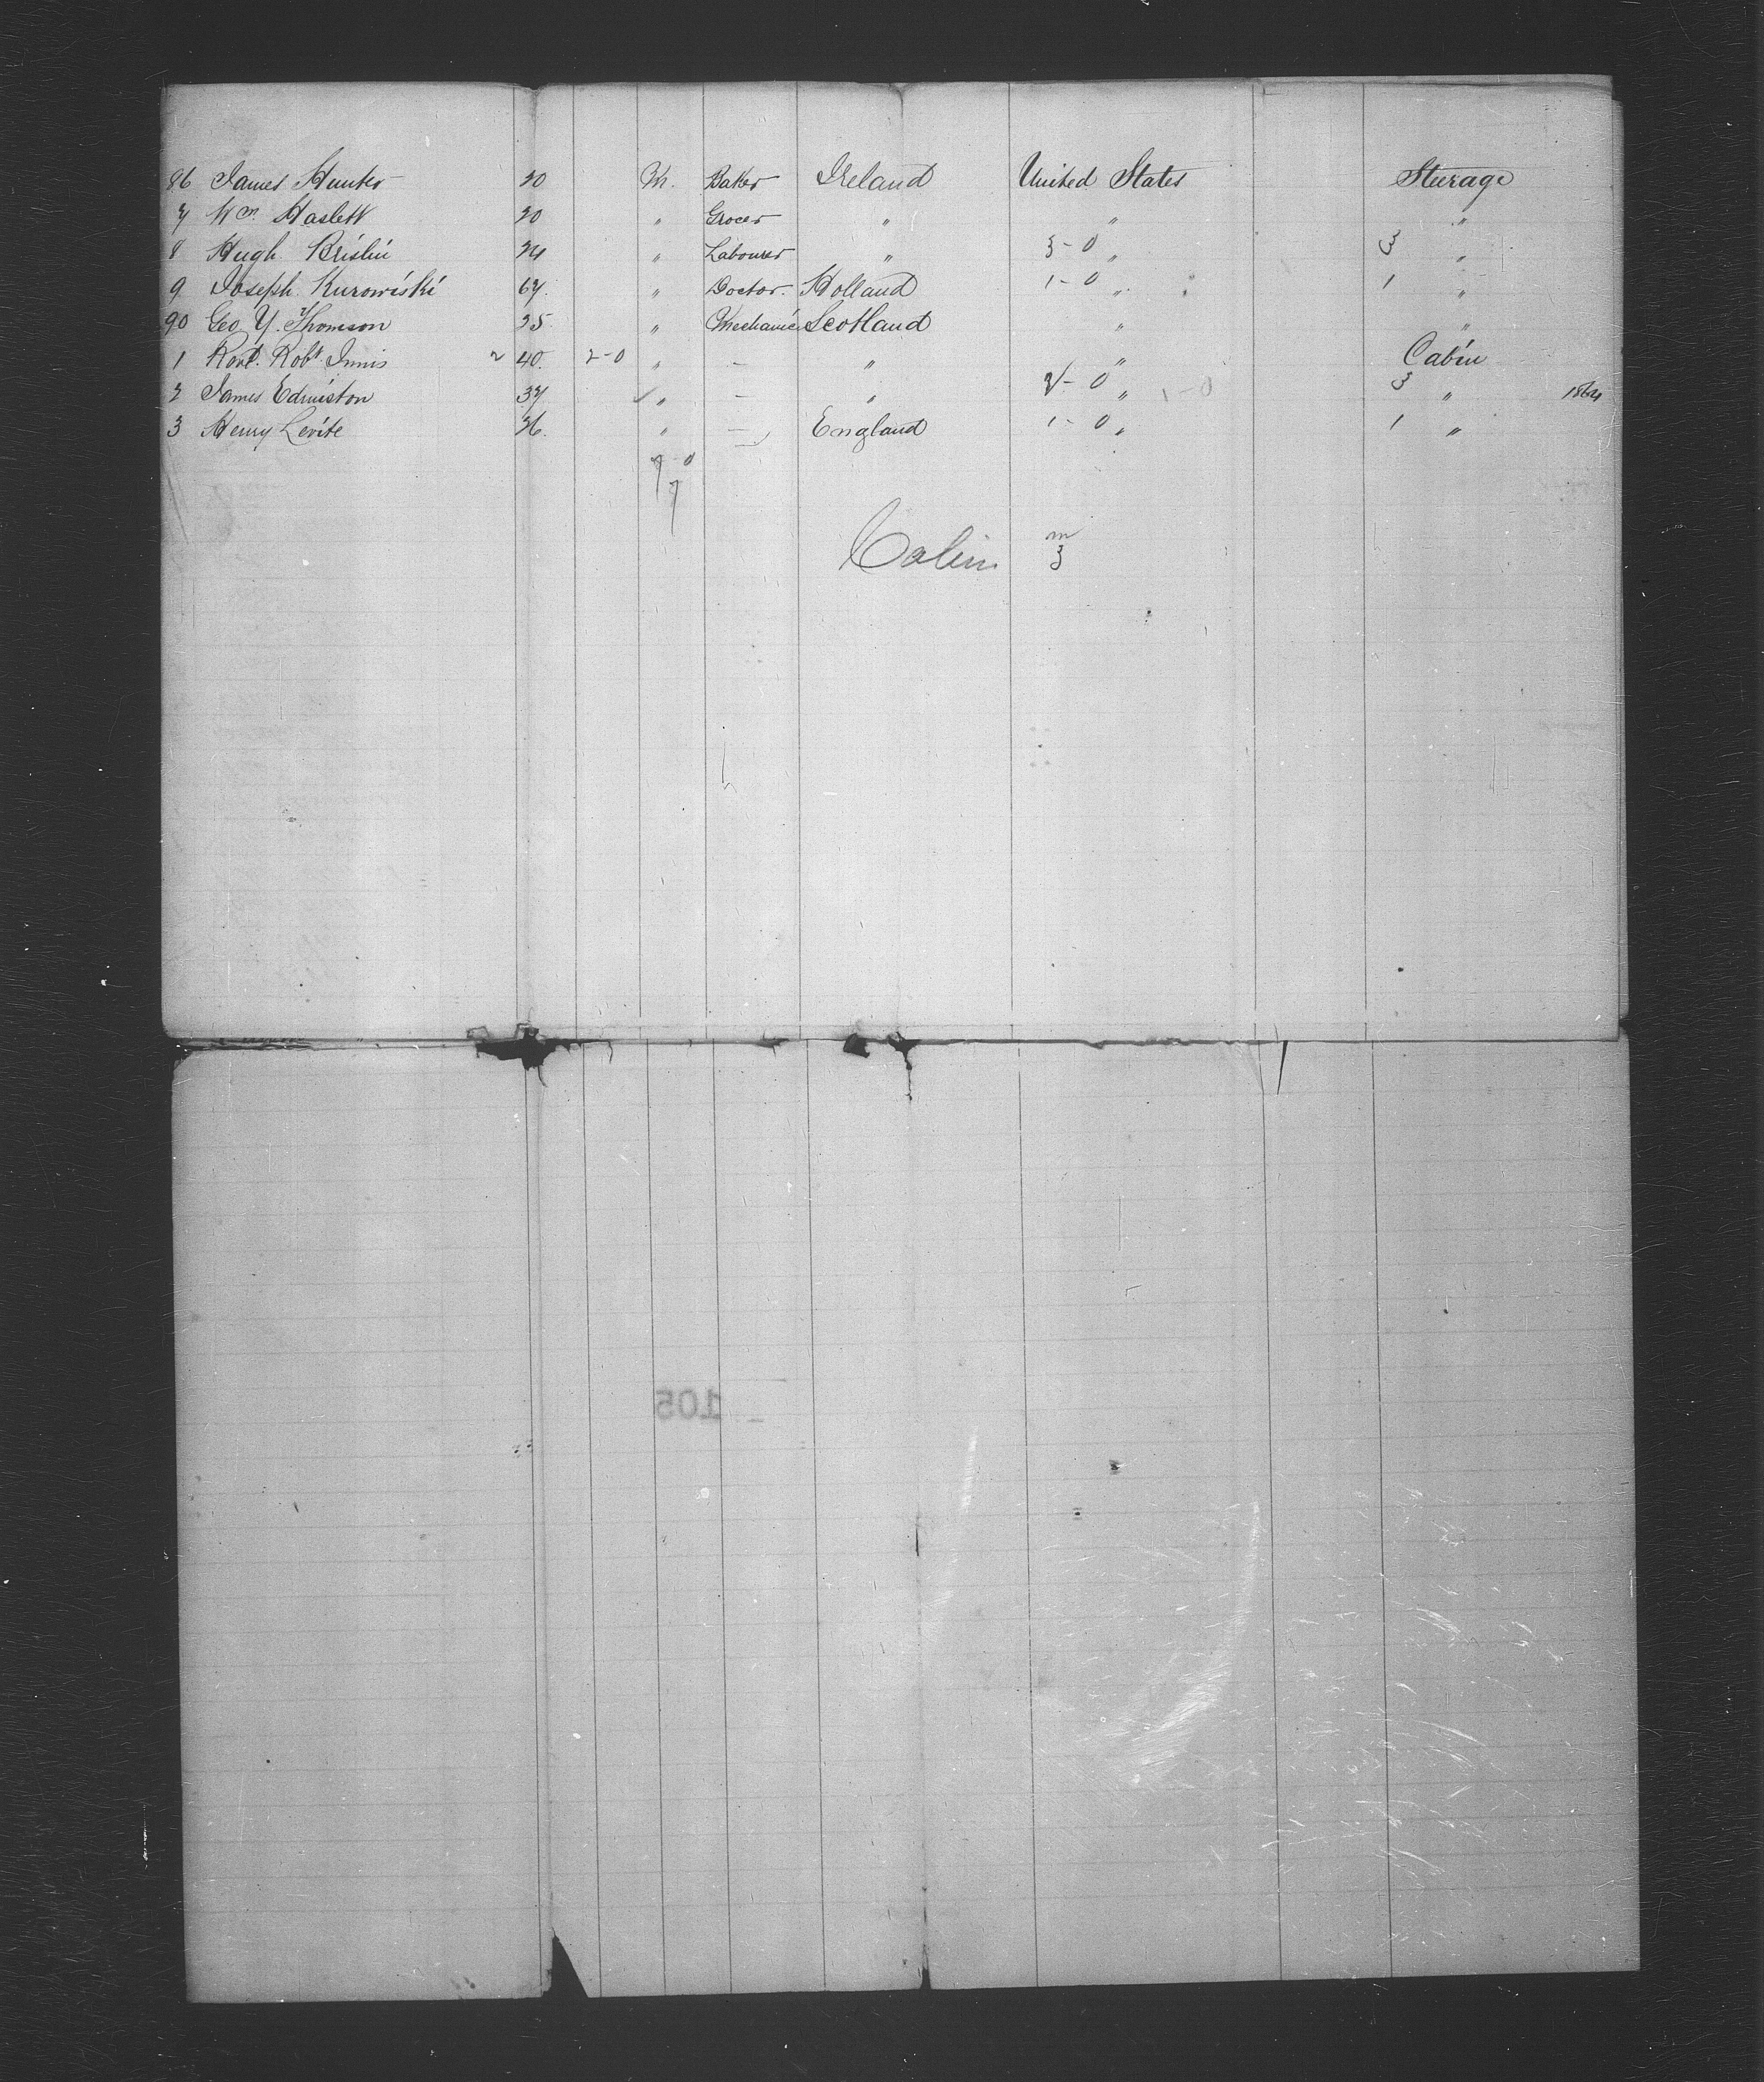 86 James Hunter 20 M. Baker Ireland United States Steerage
7 Wm. Haslett 20 " Grocer " " "
8 Hugh Brislin 24 " Labourer " 3-0 " 3 "
9 Joseph Kurowiski 67. " Doctor. Holland 1-0 " 1 "
90 Geo. Y. Thomson 25. " Mechanic Scotland " "
1 Robt. Innis 2 40. 2-0 " - " " Cabin
2 James Edmiston 37 " - " 2-0 " 1-0 3 " 1864
3 Henry Levite 36. " - England 1-0 " 1 "
7-0
7
Cabin m
3
105